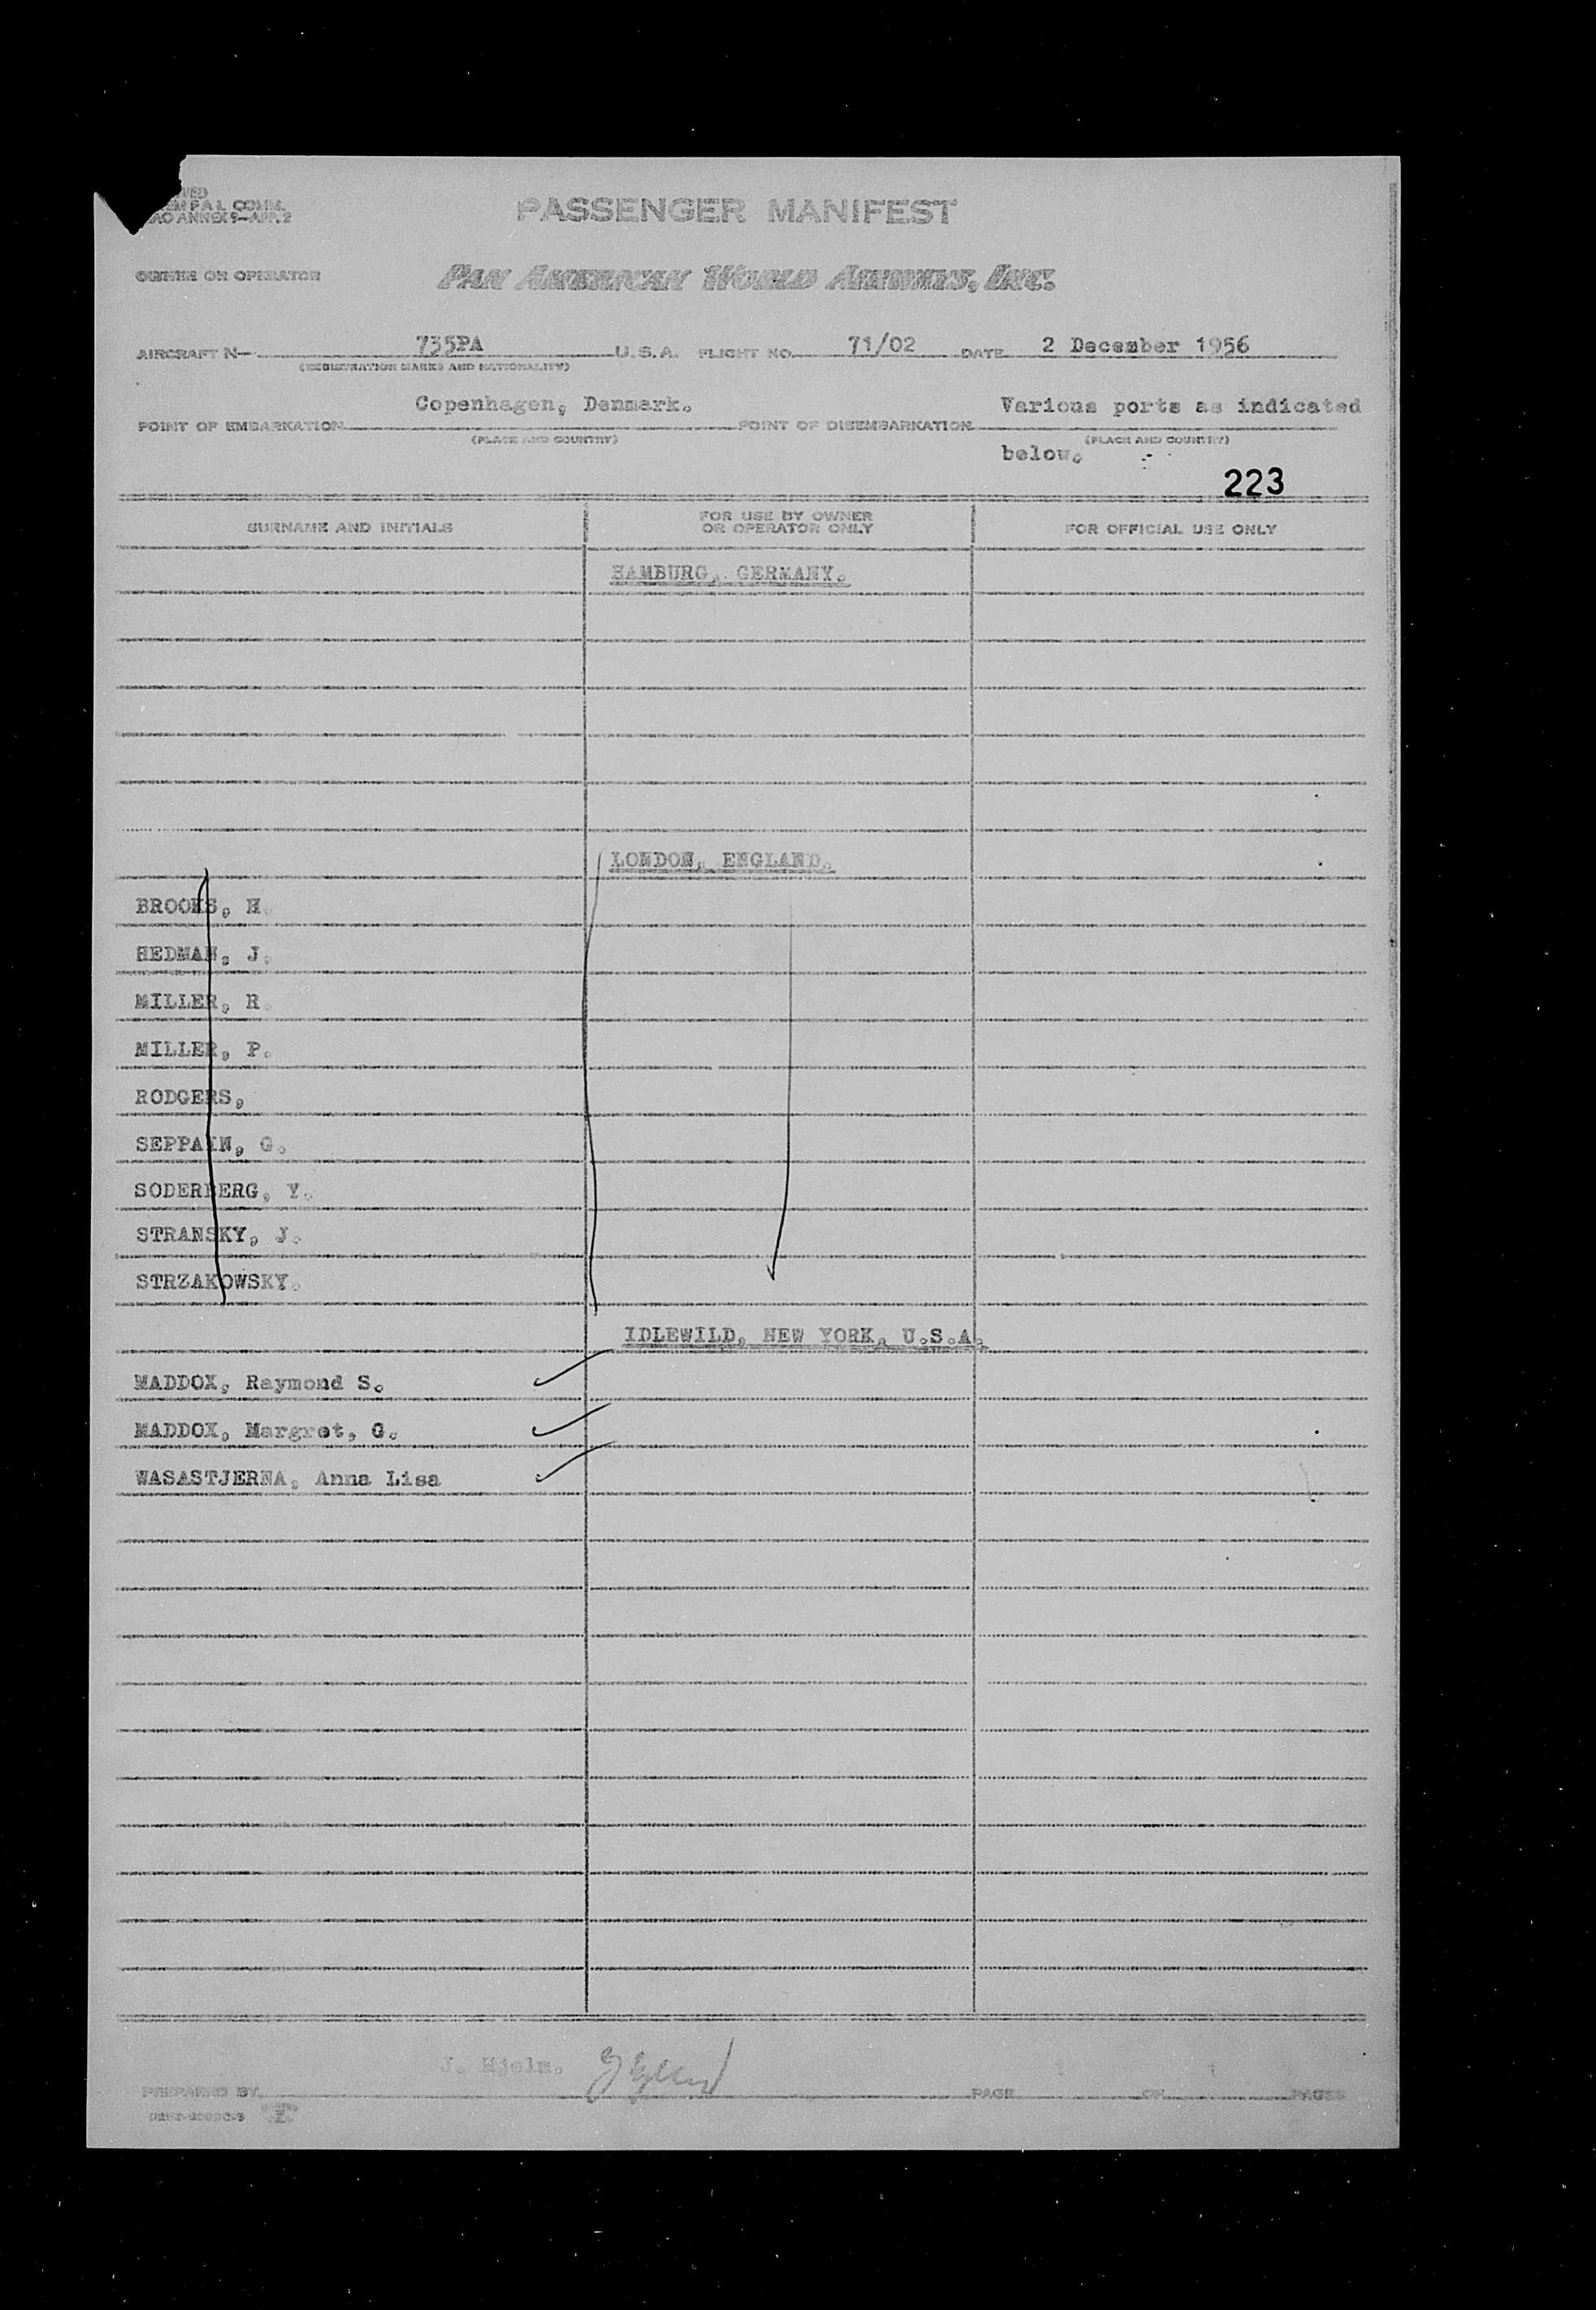 PASSENGER MANIFEST
COMM.
ANNEX 9—APP. 2
OWNER OR OPERATOR
PAN AMERICAN WORLD AIRWAYS, INC.
AIRCRAFT N— 735PA U.S.A. FLIGHT NO. 71/02 DATE 2 December 1956
(REGISTRATION MARKS AND NATIONALITY)
POINT OF EMBARKATION Copenhagen, Denmark. POINT OF DISEMBARKATION Various ports as indicated
(PLACE AND COUNTRY) (PLACE AND COUNTRY)
below.
223
SURNAME AND INITIALS FOR USE BY OWNER OR OPERATOR ONLY FOR OFFICIAL USE ONLY
HAMBURG, GERMANY.
LONDON, ENGLAND.
BROOKS, H.
HEDMAN, J.
MILLER, R.
MILLER, P.
RODGERS,
SEPPAIN, G.
SODERBERG, Y.
STRANSKY, J.
STRZAKOWSKY.
IDLEWILD, NEW YORK, U.S.A.
MADDOX, Raymond S.
MADDOX, Margret, G.
WASASTJERNA, Anna Lisa
J. Hjelm.
PREPARED BY PAGE OF PAGES